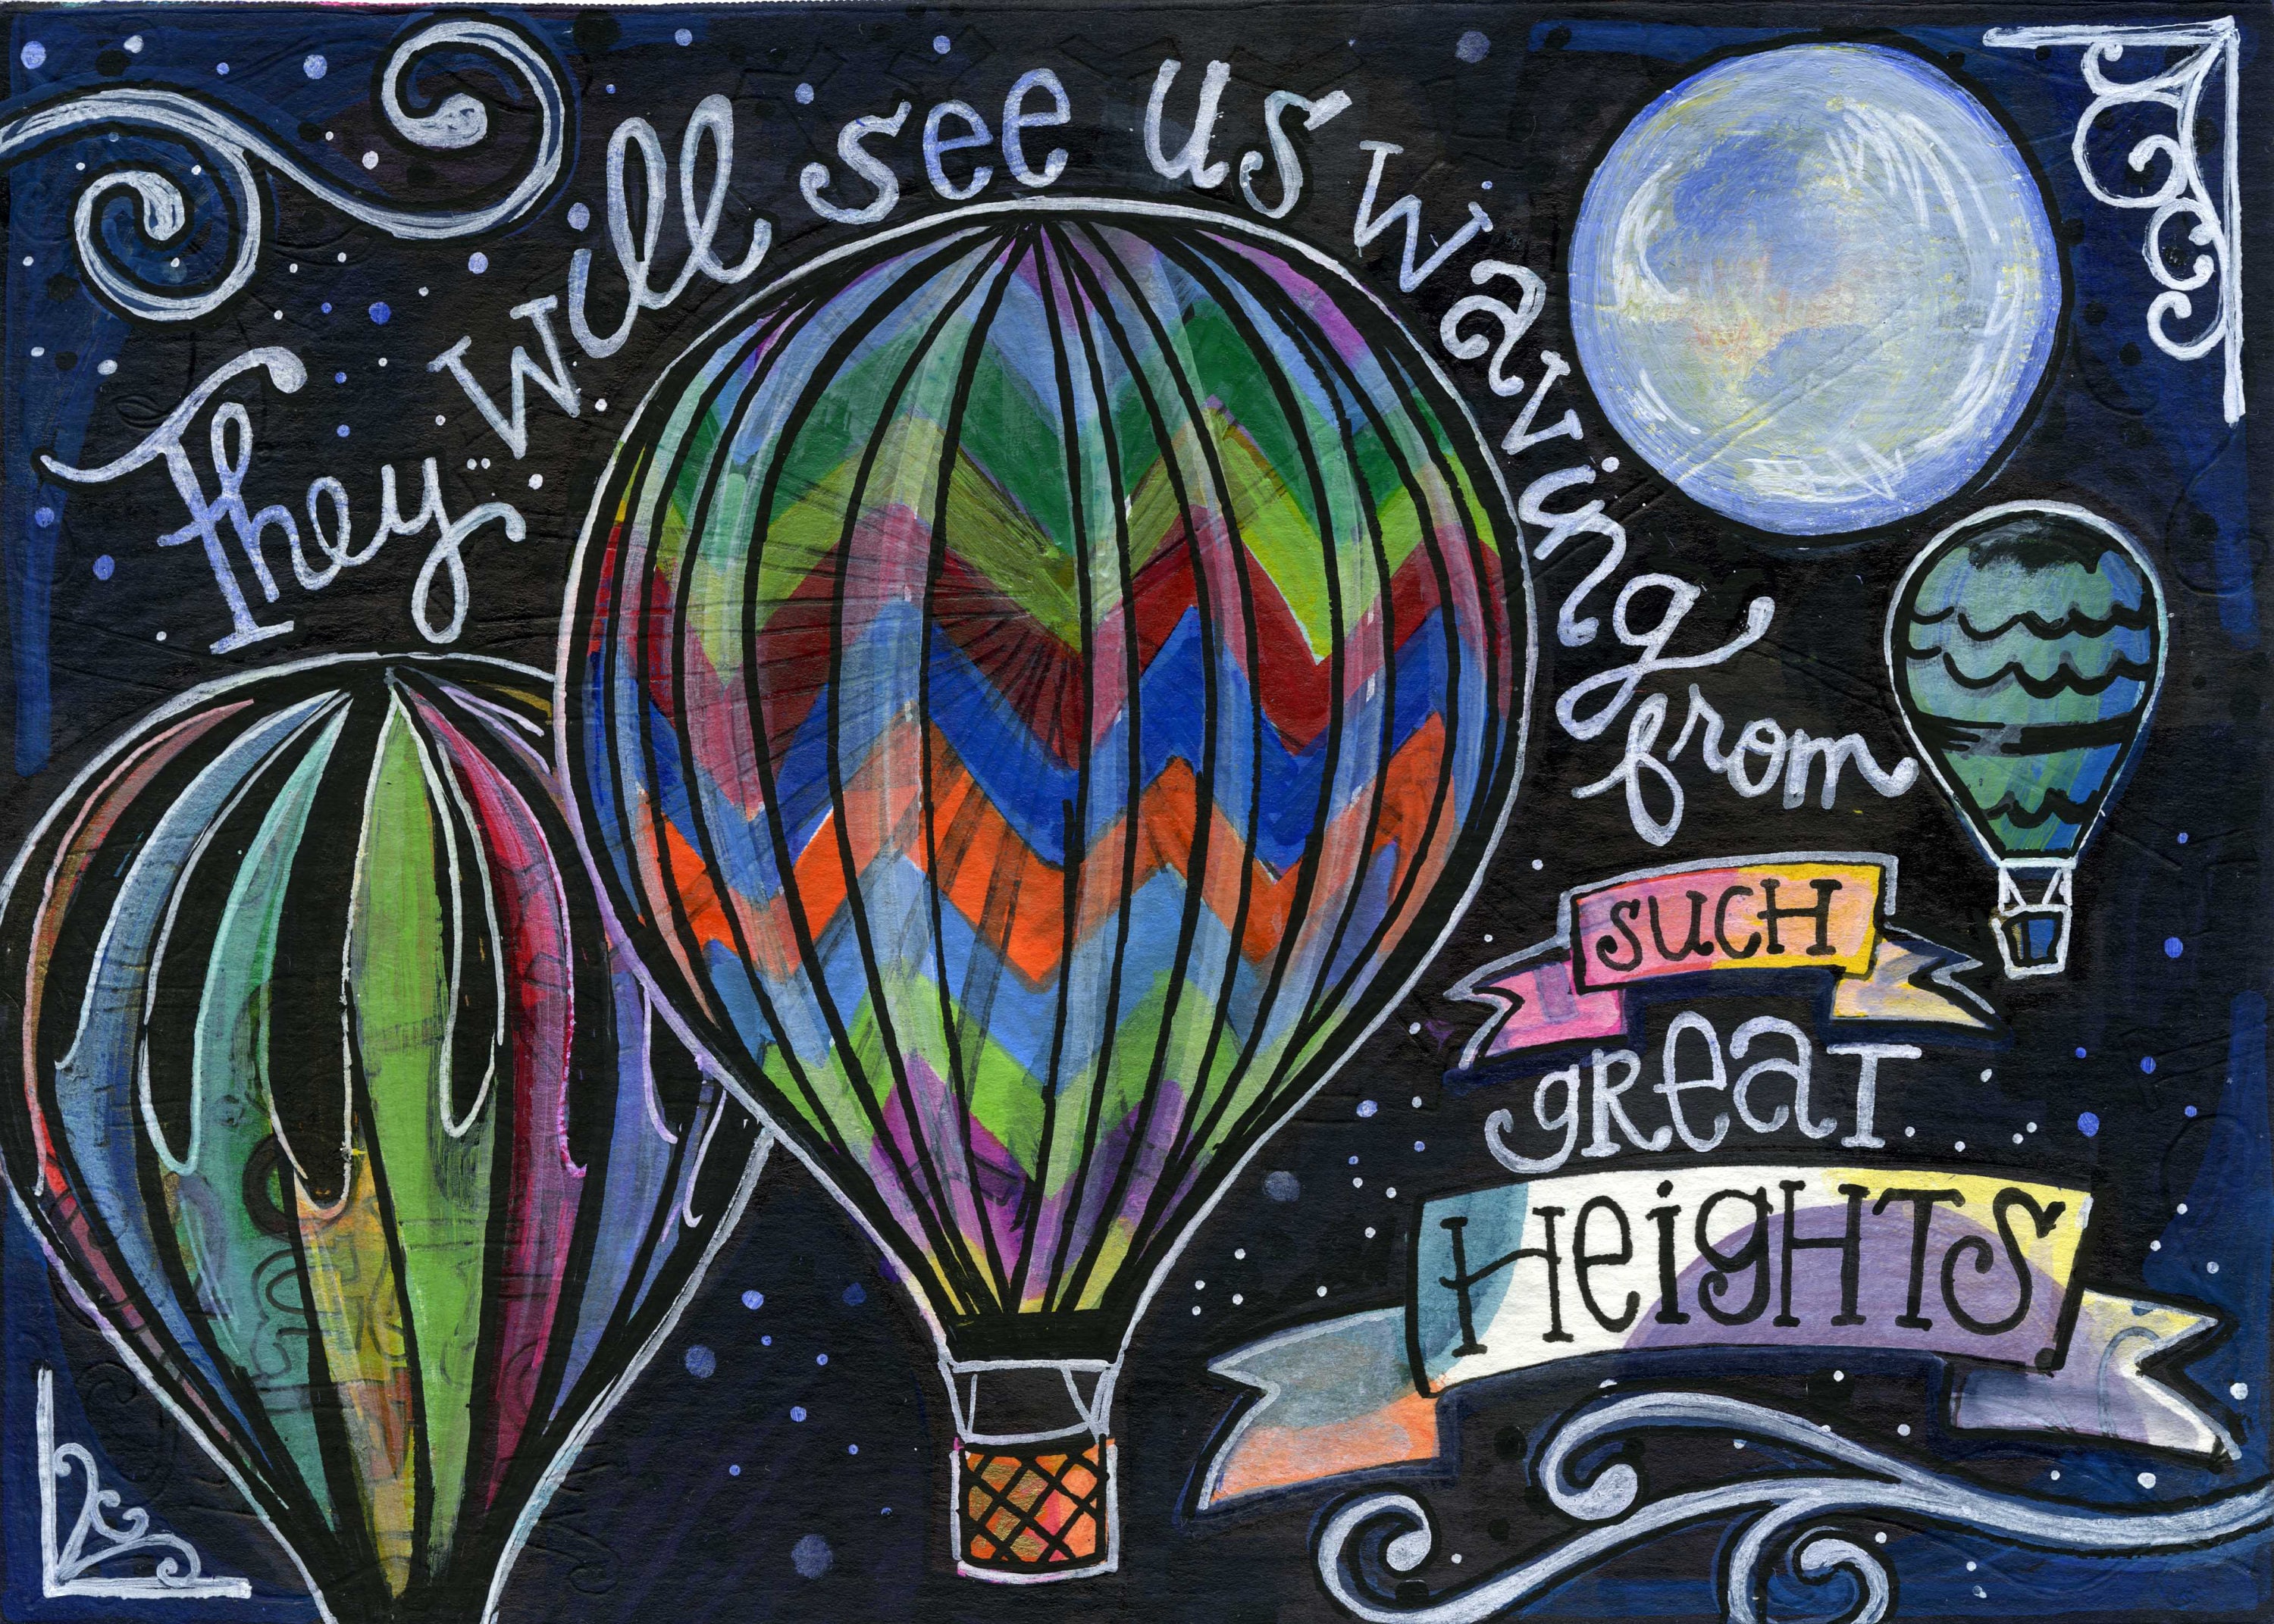 They will see us waving from
SUCH
gREaT
HeigHTS